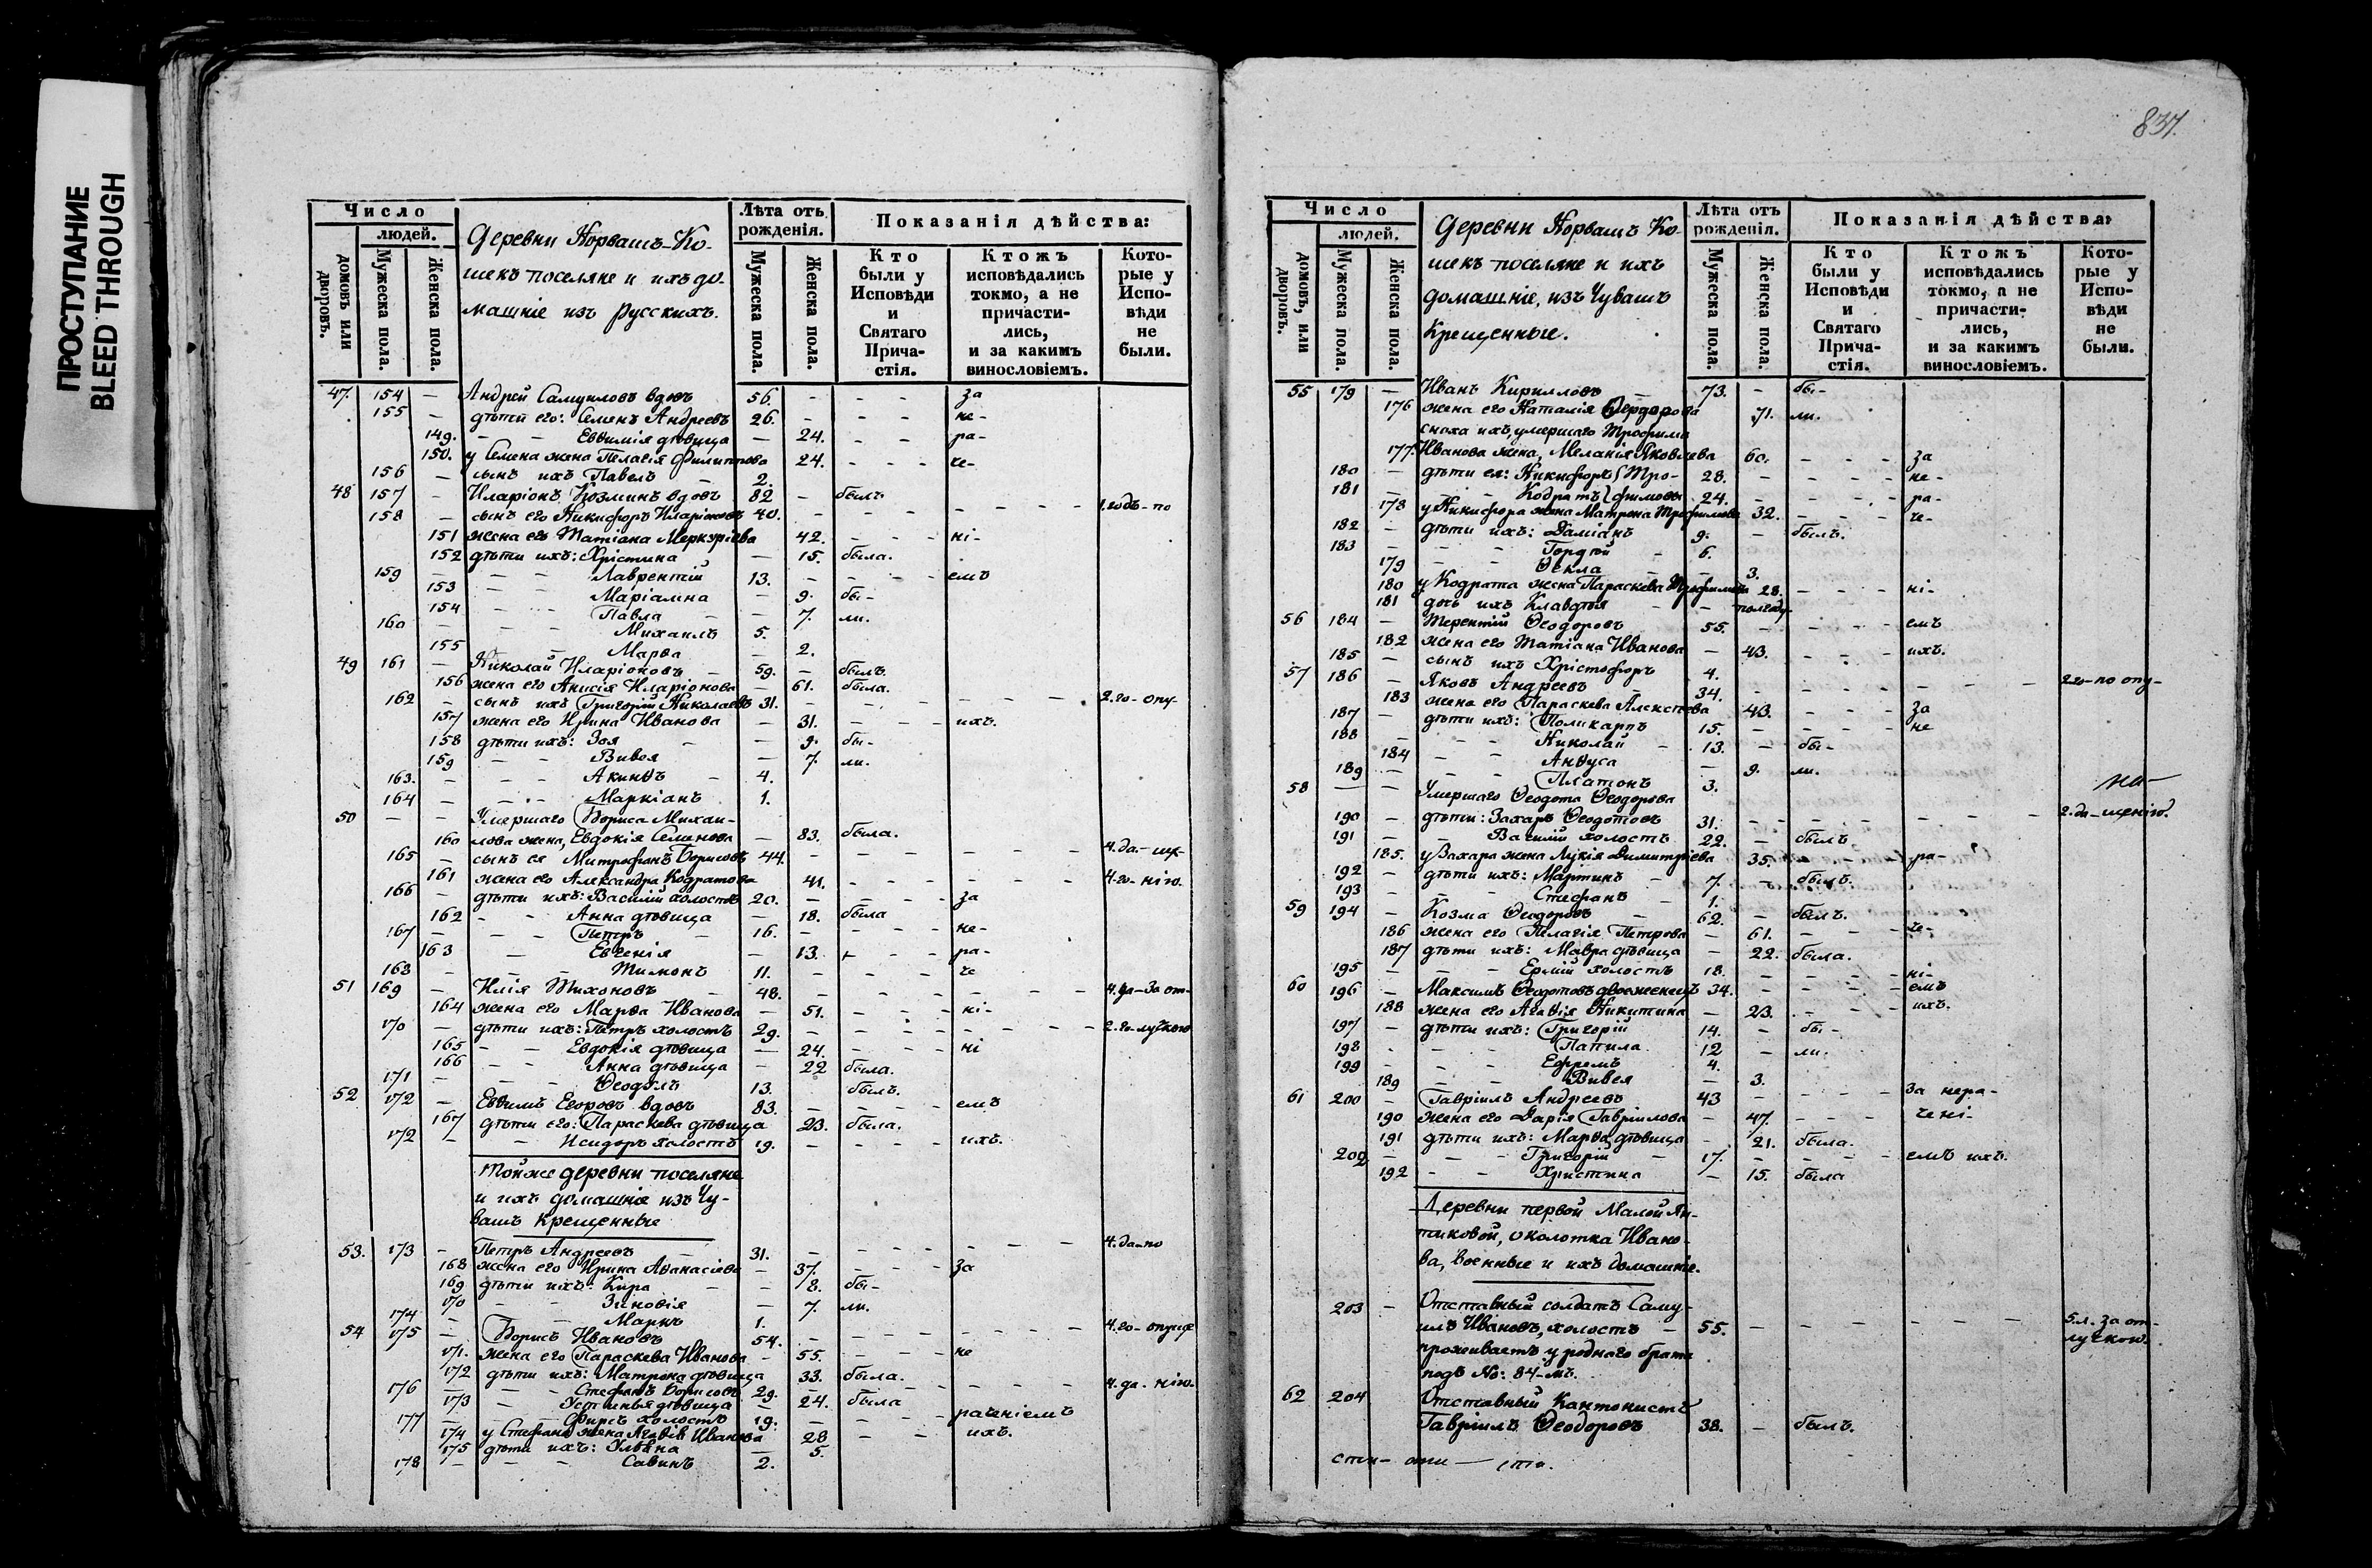 ПРОСТУПАНИЕ
BLEED THROUGH
837.
Число
людей.
домовъ или дворовъ.
Мужеска пола.
Женска пола.
Деревни Норвашъ-Ко-
шекъ поселяне и ихъ до-
машніе изъ Русскихъ.
Лѣта отъ рожденія.
Мужеска пола.
Женска пола.
Показанія дѣйства:
Кто были у Исповѣди и Святаго Прича-стія.
Ктожъ исповѣдались токмо, а не причасти-лись, и за какимъ винословіемъ.
Кото-рые у Испо-вѣди не были.
47. 154 — Андрей Самуиловъ вдовъ 56. - - - за
155 — дѣти его: Семенъ Андреевъ 26. - - - не-
149. - - Евѳимія дѣвица — 24. - - ра-
150. у Семена жена Пелагія Филиппова 24. - - - че-
156 — сынъ ихъ Павелъ — 2.
48 157 - Иларіонъ Козминъ вдовъ 82 - былъ
158 — сынъ его Никифоръ Иларіоновъ 40. - - - - - - - 1. годъ-по
151 жена его Татіана Меркуріева 42. - - - ні-
152 дѣти ихъ: Христина — 15. была.
159 — - - Лаврентій 13. - - - - емъ
153 - - Маріамна - 9. бы-
154 - - Павла - 7. ли.
160 — - - Михаилъ 5.
155 - Марѳа — 2.
49 161 — Николай Иларіоновъ — 59. - былъ
156 жена его Анисія Иларіонова — 61. была.
162 — сынъ ихъ Григорій Николаевъ 31. - - - - - - 2. го-опу-
157 жена его Ирина Иванова — 31. - - - ихъ.
158 дѣти ихъ: Зоя - — 9. бы-
159 - - Вивея — 7. ли.
163. - - - Акинѳъ - 4.
164 — - - Маркіанъ 1.
50 — — Умершаго Бориса Михаи-
160 лова жена, Евдокія Семенова — 83. была.
165 — сынъ ея Митрофанъ Борисовъ 44. - - - - - - 4. да-щу-
161 жена его Александра Кодратова 41. - - - - - - 4. го-нію.
166 — дѣти ихъ: Василій холостъ 20. - - - - за
162 - - Анна дѣвица — 18. была
167 — - - Петръ - 16. - - - - не-
163 — Евгенія — 13. - - - ра-
168 — - - Тимонъ 11. - - - - че
51 169 — Илія Тихоновъ - 48. - - - - - - 4. да-За от-
164 жена его Марѳа Иванова — 51. - - - ні-
170 — дѣти ихъ: Петръ холостъ 29. - - - - - - 2. го-лучкою
165 - - Евдокія дѣвица — 24. - - - ні
166 - - Анна дѣвица - 22 была.
171 — - - Ѳеодулъ 13. былъ.
52 172 — Евѳимъ Егоровъ вдовъ 83. - - - - емъ
167 дѣти его: Параскева дѣвица 23. была.
172 — - Исидоръ холостъ 19. - - - - ихъ.
Той же деревни поселяне
и ихъ домашніе изъ Чу-
вашъ крещенные
53. 173 - Петръ Андреевъ — 31. - - - - - - 4. да-по
168 жена его Ирина Аѳанасіева — 37. - - - за
169 дѣти ихъ: Кира - - 8. бы-
170 - - Зиновія — 7. ли.
174 — - - Маркъ 1.
54 175 — Борисъ Ивановъ 54. - - - - - - 4. го-опуще
171. жена его Параскева Иванова - 55. - - - не
172 дѣти ихъ: Матрона дѣвица 33. была.
176 — - - Стефанъ Борисовъ 29. - - - - - - 4. да. нію.
173 - - Устинья дѣвица — 24. была
177 — - - Фирсъ холостъ 19. - - - - раченіемъ
174 у Стефана жена Агаѳія Иванова 28 - - - ихъ.
175 дѣти ихъ: Ульяна — 5.
178 — - - Савинъ 2.
Число
людей.
домовъ, или дворовъ.
Мужеска пола.
Женска пола.
Деревни Норвашъ Ко-
шекъ поселяне и ихъ
домашніе, изъ Чувашъ
Крещенные.
Лѣта отъ рожденія.
Мужеска пола.
Женска пола.
Показанія дѣйства:
Кто были у Исповѣди и Святаго Прича-стія.
Ктожъ исповѣдались токмо, а не причасти-лись, и за какимъ винословіемъ.
Кото-рые у Испо-вѣди не были.
55 179 — Иванъ Кирилловъ — 73. - бы-
176 жена его Наталія Ѳеодорова 71. ли.
сноха ихъ, умершаго Трофима
177. Иванова жена, Меланія Яковлева 60. - - - за
180 — дѣти ея: Никифоръ Тро- 28. - - - - не-
181 - - Кодратъ фимовы 24. - - - - ра-
178 у Никифора жена Матрона Трофимова 32. - - - че-
182 — дѣти ихъ: Даміанъ 9. - былъ.
183 - - - Гордѣй - 6.
179 - - Ѳекла — - 3.
180 у Кодрата жена Параскева 28. - - - ні-
181 дочь ихъ Клавдія - - полгоду
56 184 — Терентій Ѳеодоровъ 55. - - - - емъ
182 жена его Татіана Иванова — 43. - - - ихъ.
185 — сынъ ихъ Христофоръ 4.
57 186 — Яковъ Андреевъ - 34. - - - - - - 2 го-по опу-
183 жена его Параскева Алексѣева 43. - - - за
187 — дѣти ихъ: Поликарпъ 15. - - - - не
188 — - - Николай - 13. - бы-
184 - - Анѳуса — 9. ли.
189 — - - Платонъ 3.
58 — — Умершаго Ѳеодота Ѳеодорова
190 - дѣти: Захаръ Ѳеодотовъ 31. - - - - - - 2. да-щенію.
191 — - Василій холостъ 22. - былъ
185. у Захара жена Лукія Димитріева 35. - - ра-
192 — дѣти ихъ: Мартинъ - 7. - былъ.
193 - - - Стефанъ - 1.
59 194 — Козма Ѳеодоровъ — 62. - былъ.
186 жена его Пелагія Петрова — 61. - - - че-
187 дѣти ихъ: Мавра дѣвица - 22. была.
195 — - - Ермій холостъ 18. - - - - ні-
60 196 — Максимъ Ѳеодотовъ двоеженецъ 34. - - - - емъ
188 жена его Агаѳія Никитина — 23. - - - ихъ.
197 — дѣти ихъ: Григорій 14. - бы-
198 - - - Папила 12 - ли.
199 - - - Ефремъ 4.
189 - - Вивея — 3.
61 200 — Гавріилъ Андреевъ 43 - - - - За нера-
190 жена его Дарія Гавріилова — 47. - - - чені-
191 дѣти ихъ: Марѳа дѣвица - 21. была.
202 — - - Григорій - 17. - - - - емъ ихъ.
192 - - Христина — 15. была
Деревни первой Малой Ян-
тиковой, околотка Ивано-
ва, военные и ихъ домашніе.
203 — Отставный солдатъ Саму-
илъ Ивановъ, холостъ — 55. - - - - - - 5 л. За от-
проживаетъ у роднаго брата лучкою.
подъ No: 84-мъ.
62 204 Отставный Кантонистъ
Гавріилъ Ѳеодоровъ 38. - былъ.